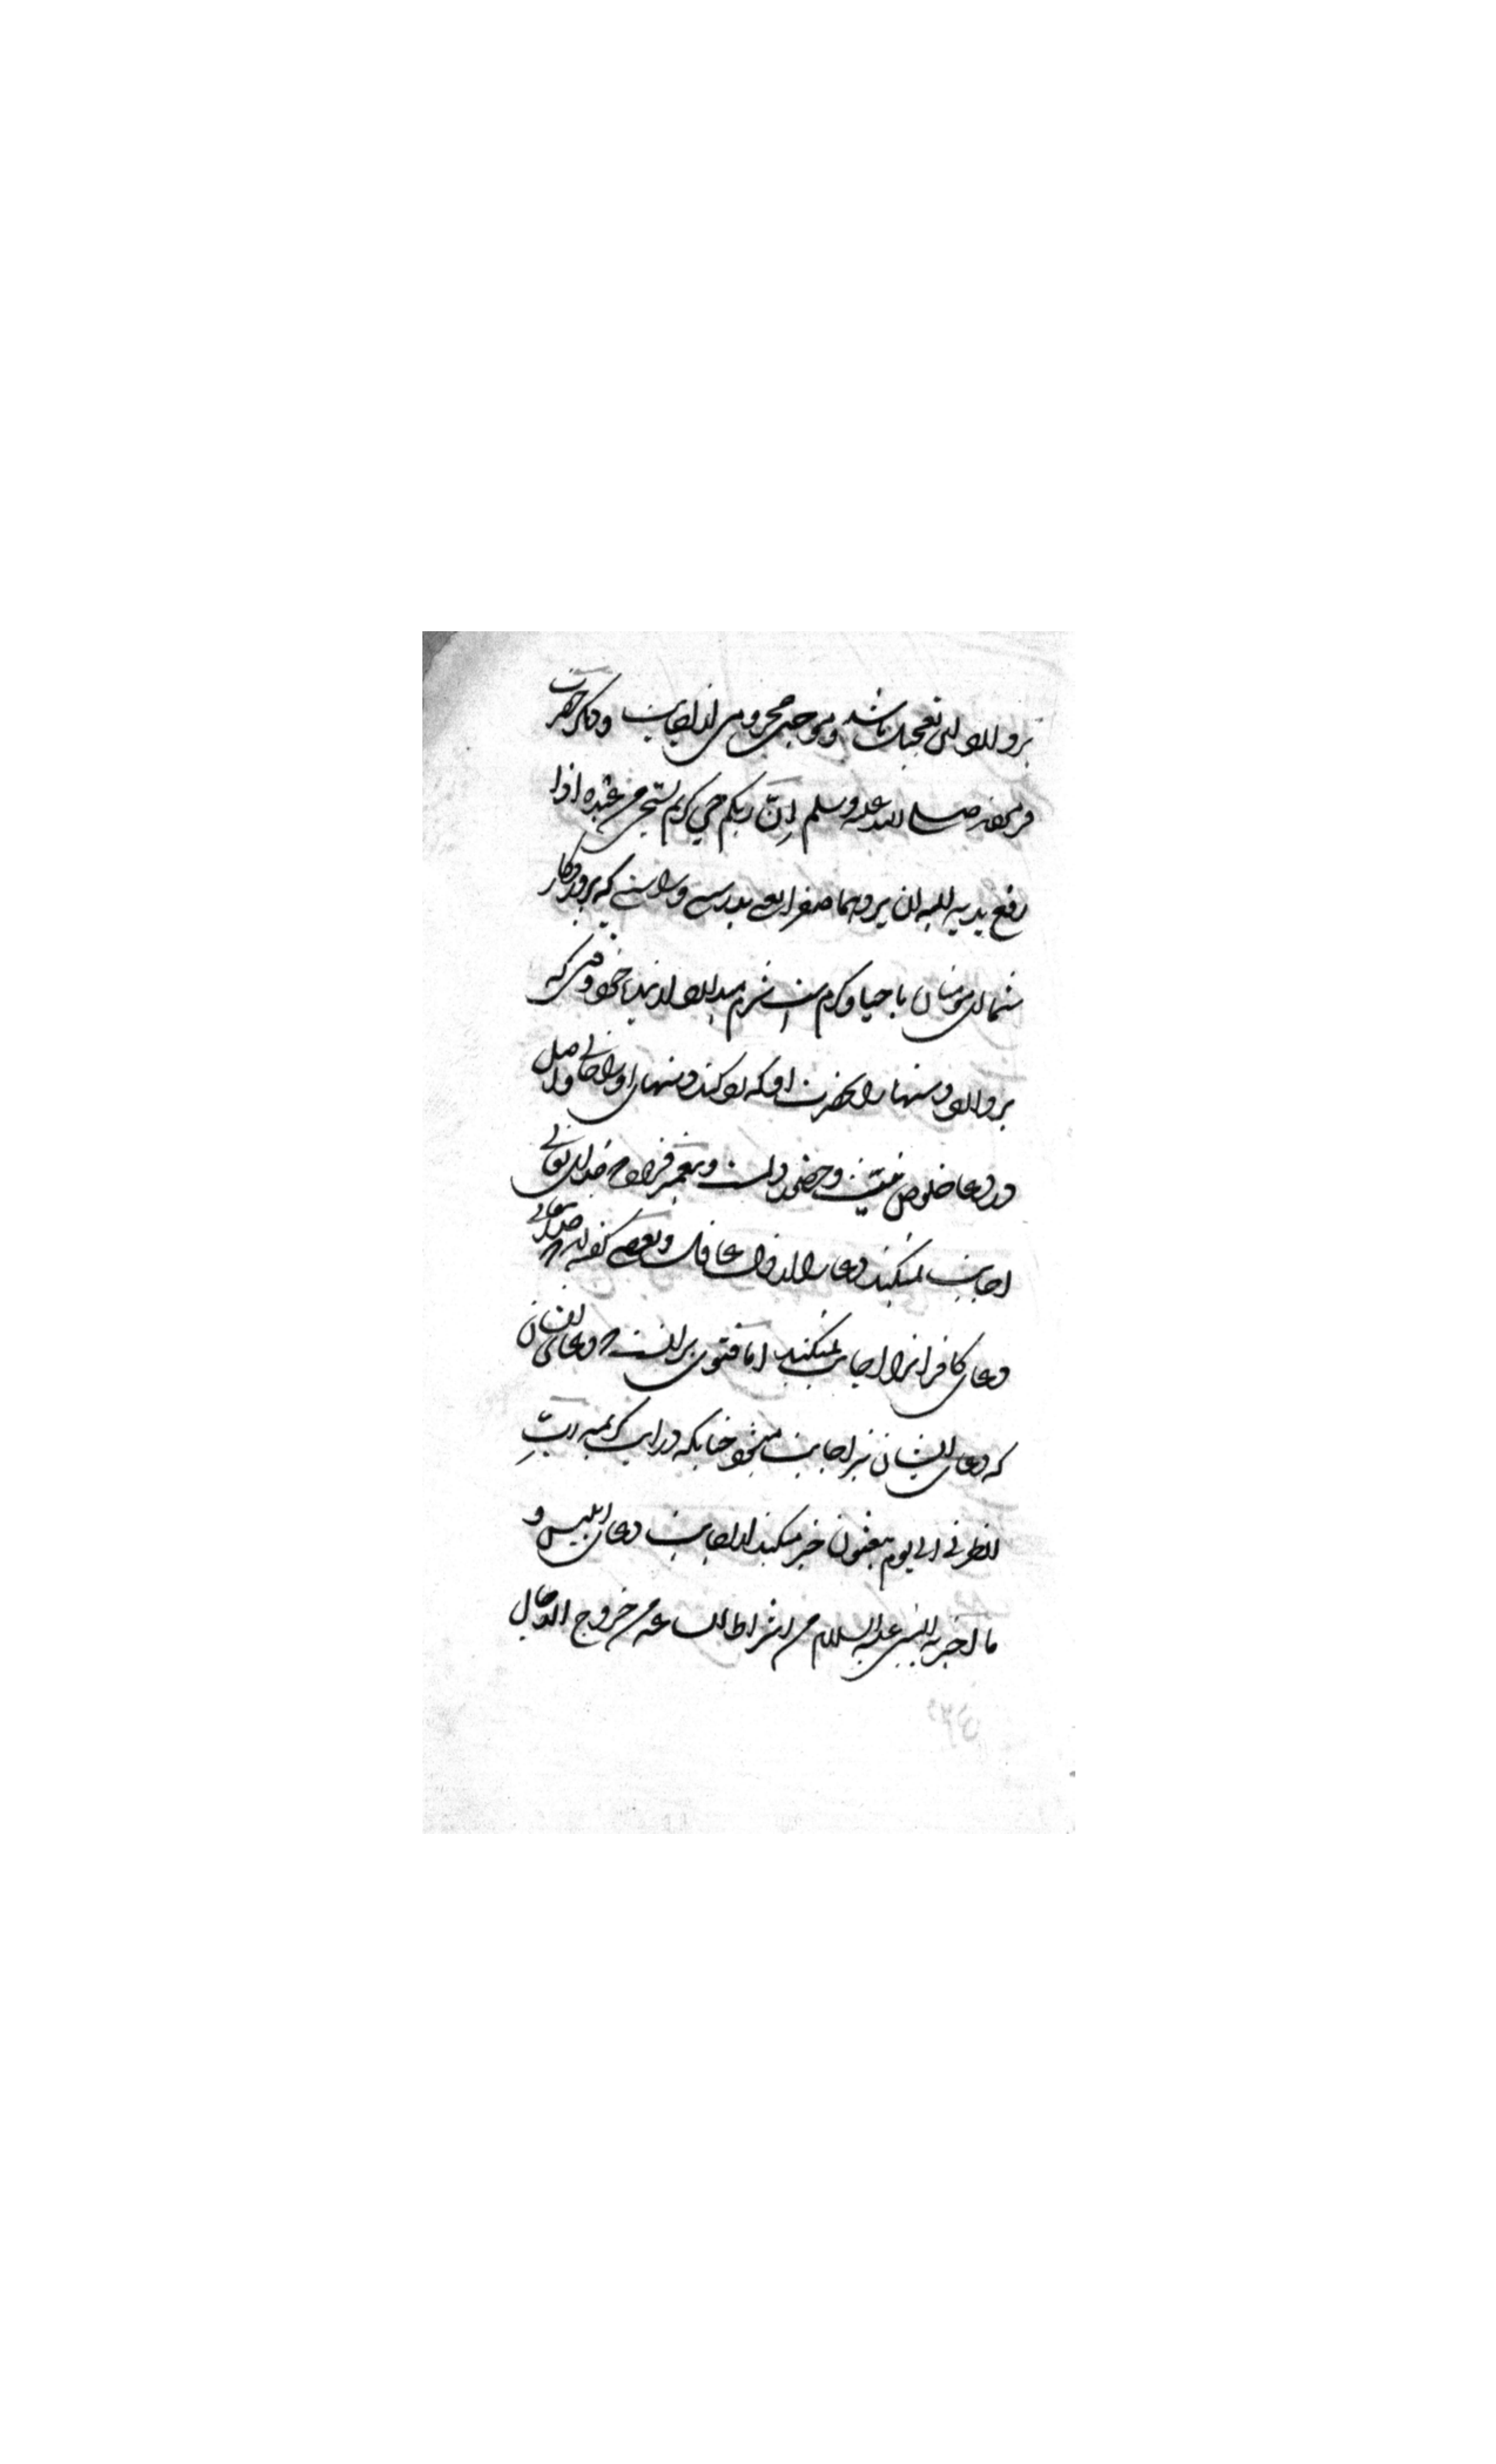 بردارد این تعجیل باشد و موجب محرومی از اجابت و دیگر حضرت
فرموده صلی الله علیه وسلم اِنَّ ربکم حیی کریم یستحیی من عبده اذا
رفع یدیه الیه ان یردهما صفرا یعنی بدرستی و راستی که پروردگار
شما ای مومنان با حیا و کرم است شرم میدارد از بنده خود وقتی که
بردارد دستها را بحضرت او که رد کند دستهای او را خالی و اصل
در دعا خلوص نیت و حضور دلست و پیغمبر فرموده خدای تعالی
اجابت نمیکند دعا را از دل غافل و بعضی گفته اند که خدای تعالی
دعای کافرانرا اجابت نمیکند اما فتوی برانست که دعای ایشان
که دعای ایشان نیز اجابت میشود چنانکه در این کریمه ربِّ
انظرنی الی یوم یبعثون خبر میکند از اجابت دعای ابلیس و
ما اخبر به النبی علیه السلام من اشراط الساعه من خروج الدجال